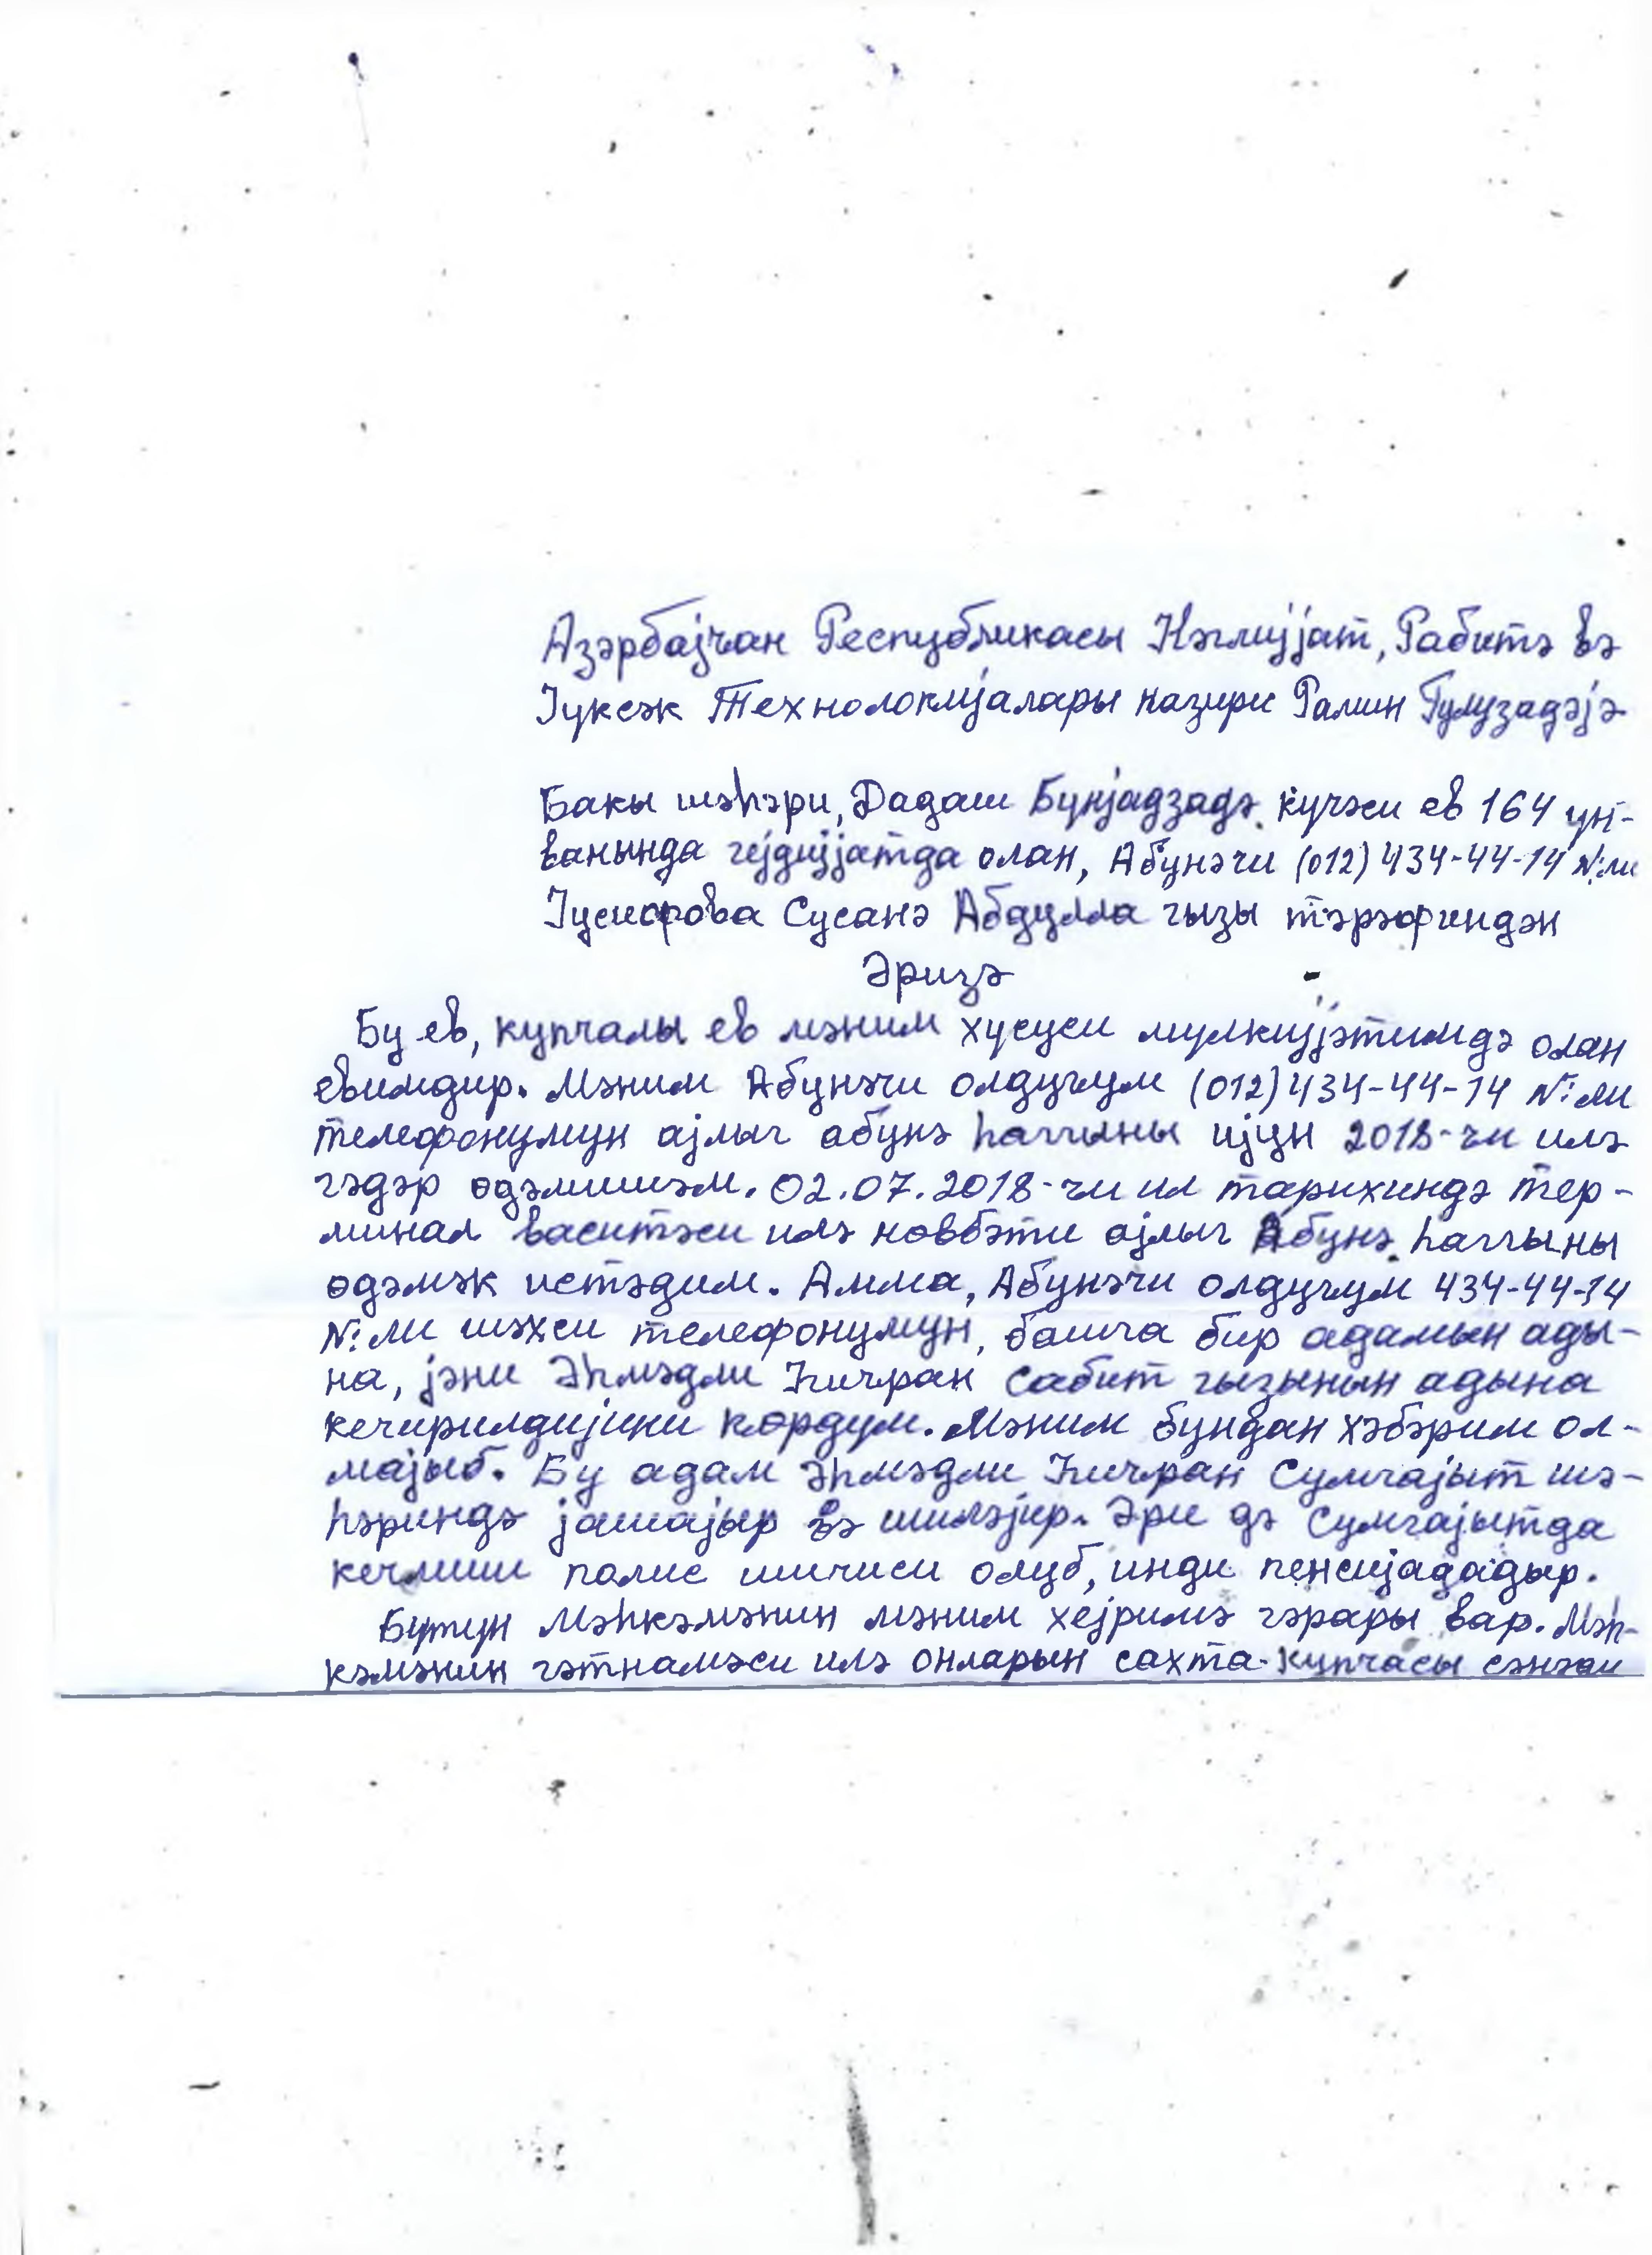 Азәрбајчан Республикасы Нәглијјат, Рабитә вә
Јуксәк Технолокијалары назири Рамин Гулузадәјә
Бакы шәһәри, Дадаш Бунјадзадә күчәси ев 164 ун-
ванында гејдијјатда олан, Абунәчи (012) 434-44-14 №:ли
Јусифова Сусанә Абдулла гызы тәрәфиндән
Әризә
Бу ев, купчалы ев мәним хусуси мулкијјәтимдә олан
евимдир. Мәним Абунәчи олдуғум (012) 434-44-14 №:ли
телефонумун ајлыг абунә һаггыны ијун 2018-чи илә
гәдәр өдәмишәм. 02.07.2018-чи ил тарихиндә тер-
минал васитәси илә новбәти ајлыг Абунә һаггыны
өдәмәк истәдим. Амма, Абунәчи олдуғум 434-44-14
№:ли шәхси телефонумун, башга бир адамын ады-
на, јәни Әһмәдли Һичран Сабит гызынын адына
кечирилдијини көрдум. Мәним бундан хәбәрим ол-
мајыб. Бу адам Әһмәдли Һичран Сумгајыт шә-
һәриндә јашајыр вә ишләјир. Әри дә Сумгајытда
кечмиш полис ишчиси олуб, инди пенсијададыр.
Бутун Мәһкәмәнин мәним хејримә гәрары вар. Мәһ-
кәмәнин гәтнамәси илә онларын сахта купчасы сәнәди